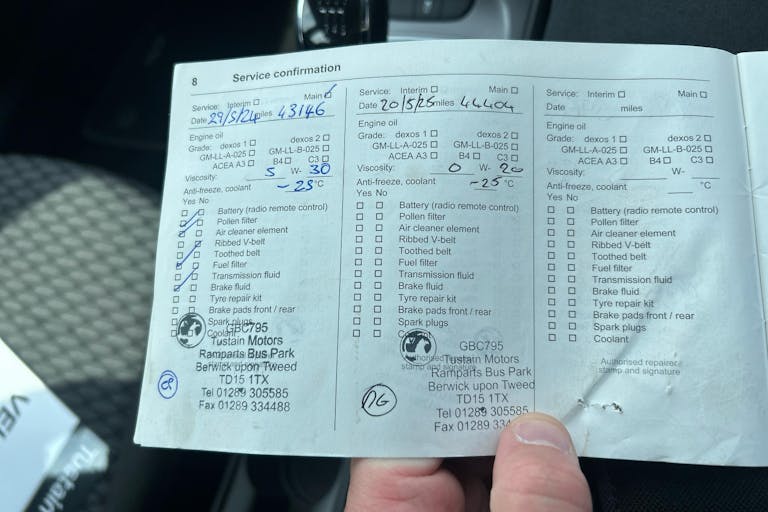 8 Service confirmation
Service: Interim ☐ Main ☑
Date 29/5/24 miles 43146
Engine oil
Grade: dexos 1 ☐ dexos 2 ☐
GM-LL-A-025 ☐ GM-LL-B-025 ☐
ACEA A3 ☐ B4 ☐ C3 ☐
Viscosity: 5 W- 30
Anti-freeze, coolant -25 °C
Yes No
Battery (radio remote control)
Pollen filter
Air cleaner element
Ribbed V-belt
Toothed belt
Fuel filter
Transmission fluid
Brake fluid
Tyre repair kit
Brake pads front / rear
Spark plugs
Coolant
GBC795
Tustain Motors
Ramparts Bus Park
Berwick upon Tweed
TD15 1TX
Tel 01289 305585
Fax 01289 334488
Service: Interim ☐ Main ☐
Date 20/5/25 miles 44404
Engine oil
Grade: dexos 1 ☐ dexos 2 ☐
GM-LL-A-025 ☐ GM-LL-B-025 ☐
ACEA A3 ☐ B4 ☐ C3 ☐
Viscosity: 0 W- 20
Anti-freeze, coolant -25 °C
Yes No
Battery (radio remote control)
Pollen filter
Air cleaner element
Ribbed V-belt
Toothed belt
Fuel filter
Transmission fluid
Brake fluid
Tyre repair kit
Brake pads front / rear
Spark plugs
Coolant
Authorised repairer
stamp and signature
GBC795
Tustain Motors
Ramparts Bus Park
Berwick upon Tweed
TD15 1TX
Tel 01289 305585
Fax 01289 334
Service: Interim ☐ Main ☐
Date miles
Engine oil
Grade: dexos 1 ☐ dexos 2 ☐
GM-LL-A-025 ☐ GM-LL-B-025 ☐
ACEA A3 ☐ B4 ☐ C3 ☐
Viscosity: W-
Anti-freeze, coolant °C
Yes No
Battery (radio remote control)
Pollen filter
Air cleaner element
Ribbed V-belt
Toothed belt
Fuel filter
Transmission fluid
Brake fluid
Tyre repair kit
Brake pads front / rear
Spark plugs
Coolant
Authorised repairer
stamp and signature
Tustain